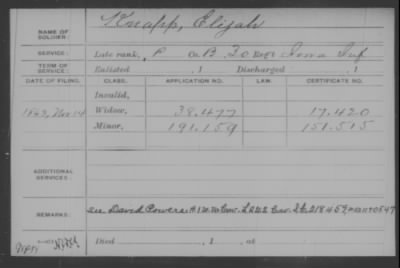 NAME OF SOLDIER: Knapp, Elijah
SERVICE: Late rank, P Co. B, 20 Reg't Iowa Inf
TERM OF SERVICE: Enlisted , 1 Discharged , 1
DATE OF FILING. CLASS. APPLICATION NO. LAW. CERTIFICATE NO.
Invalid,
1863, Nov 14 Widow, 38.477 17.420
Minor, 191.159 151.515
ADDITIONAL SERVICES:
REMARKS: see David Powers
Died , 1 , at